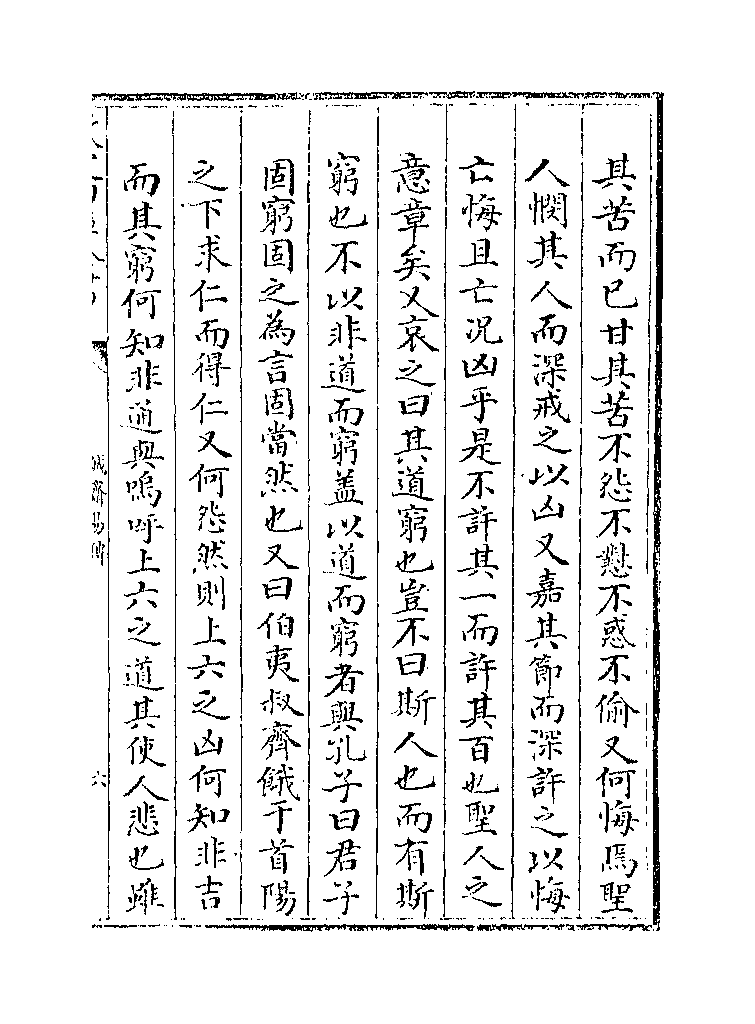 其苦而已甘其苦不怨不懟不惑不偷又何悔焉聖
人憫其人而深戒之以凶又嘉其節而深許之以悔
亡悔且亡况凶乎是不許其一而許其百也聖人之
意章矣又哀之曰其道窮也豈不曰斯人也而有斯
窮也不以非道而窮盖以道而窮者與孔子曰君子
固窮固之為言固當然也又曰伯夷叔齊餓于首陽
之下求仁而得仁又何怨然則上六之凶何知非吉
而其窮何知非通與嗚呼上六之道其使人悲也雖
誠齋易傳
六